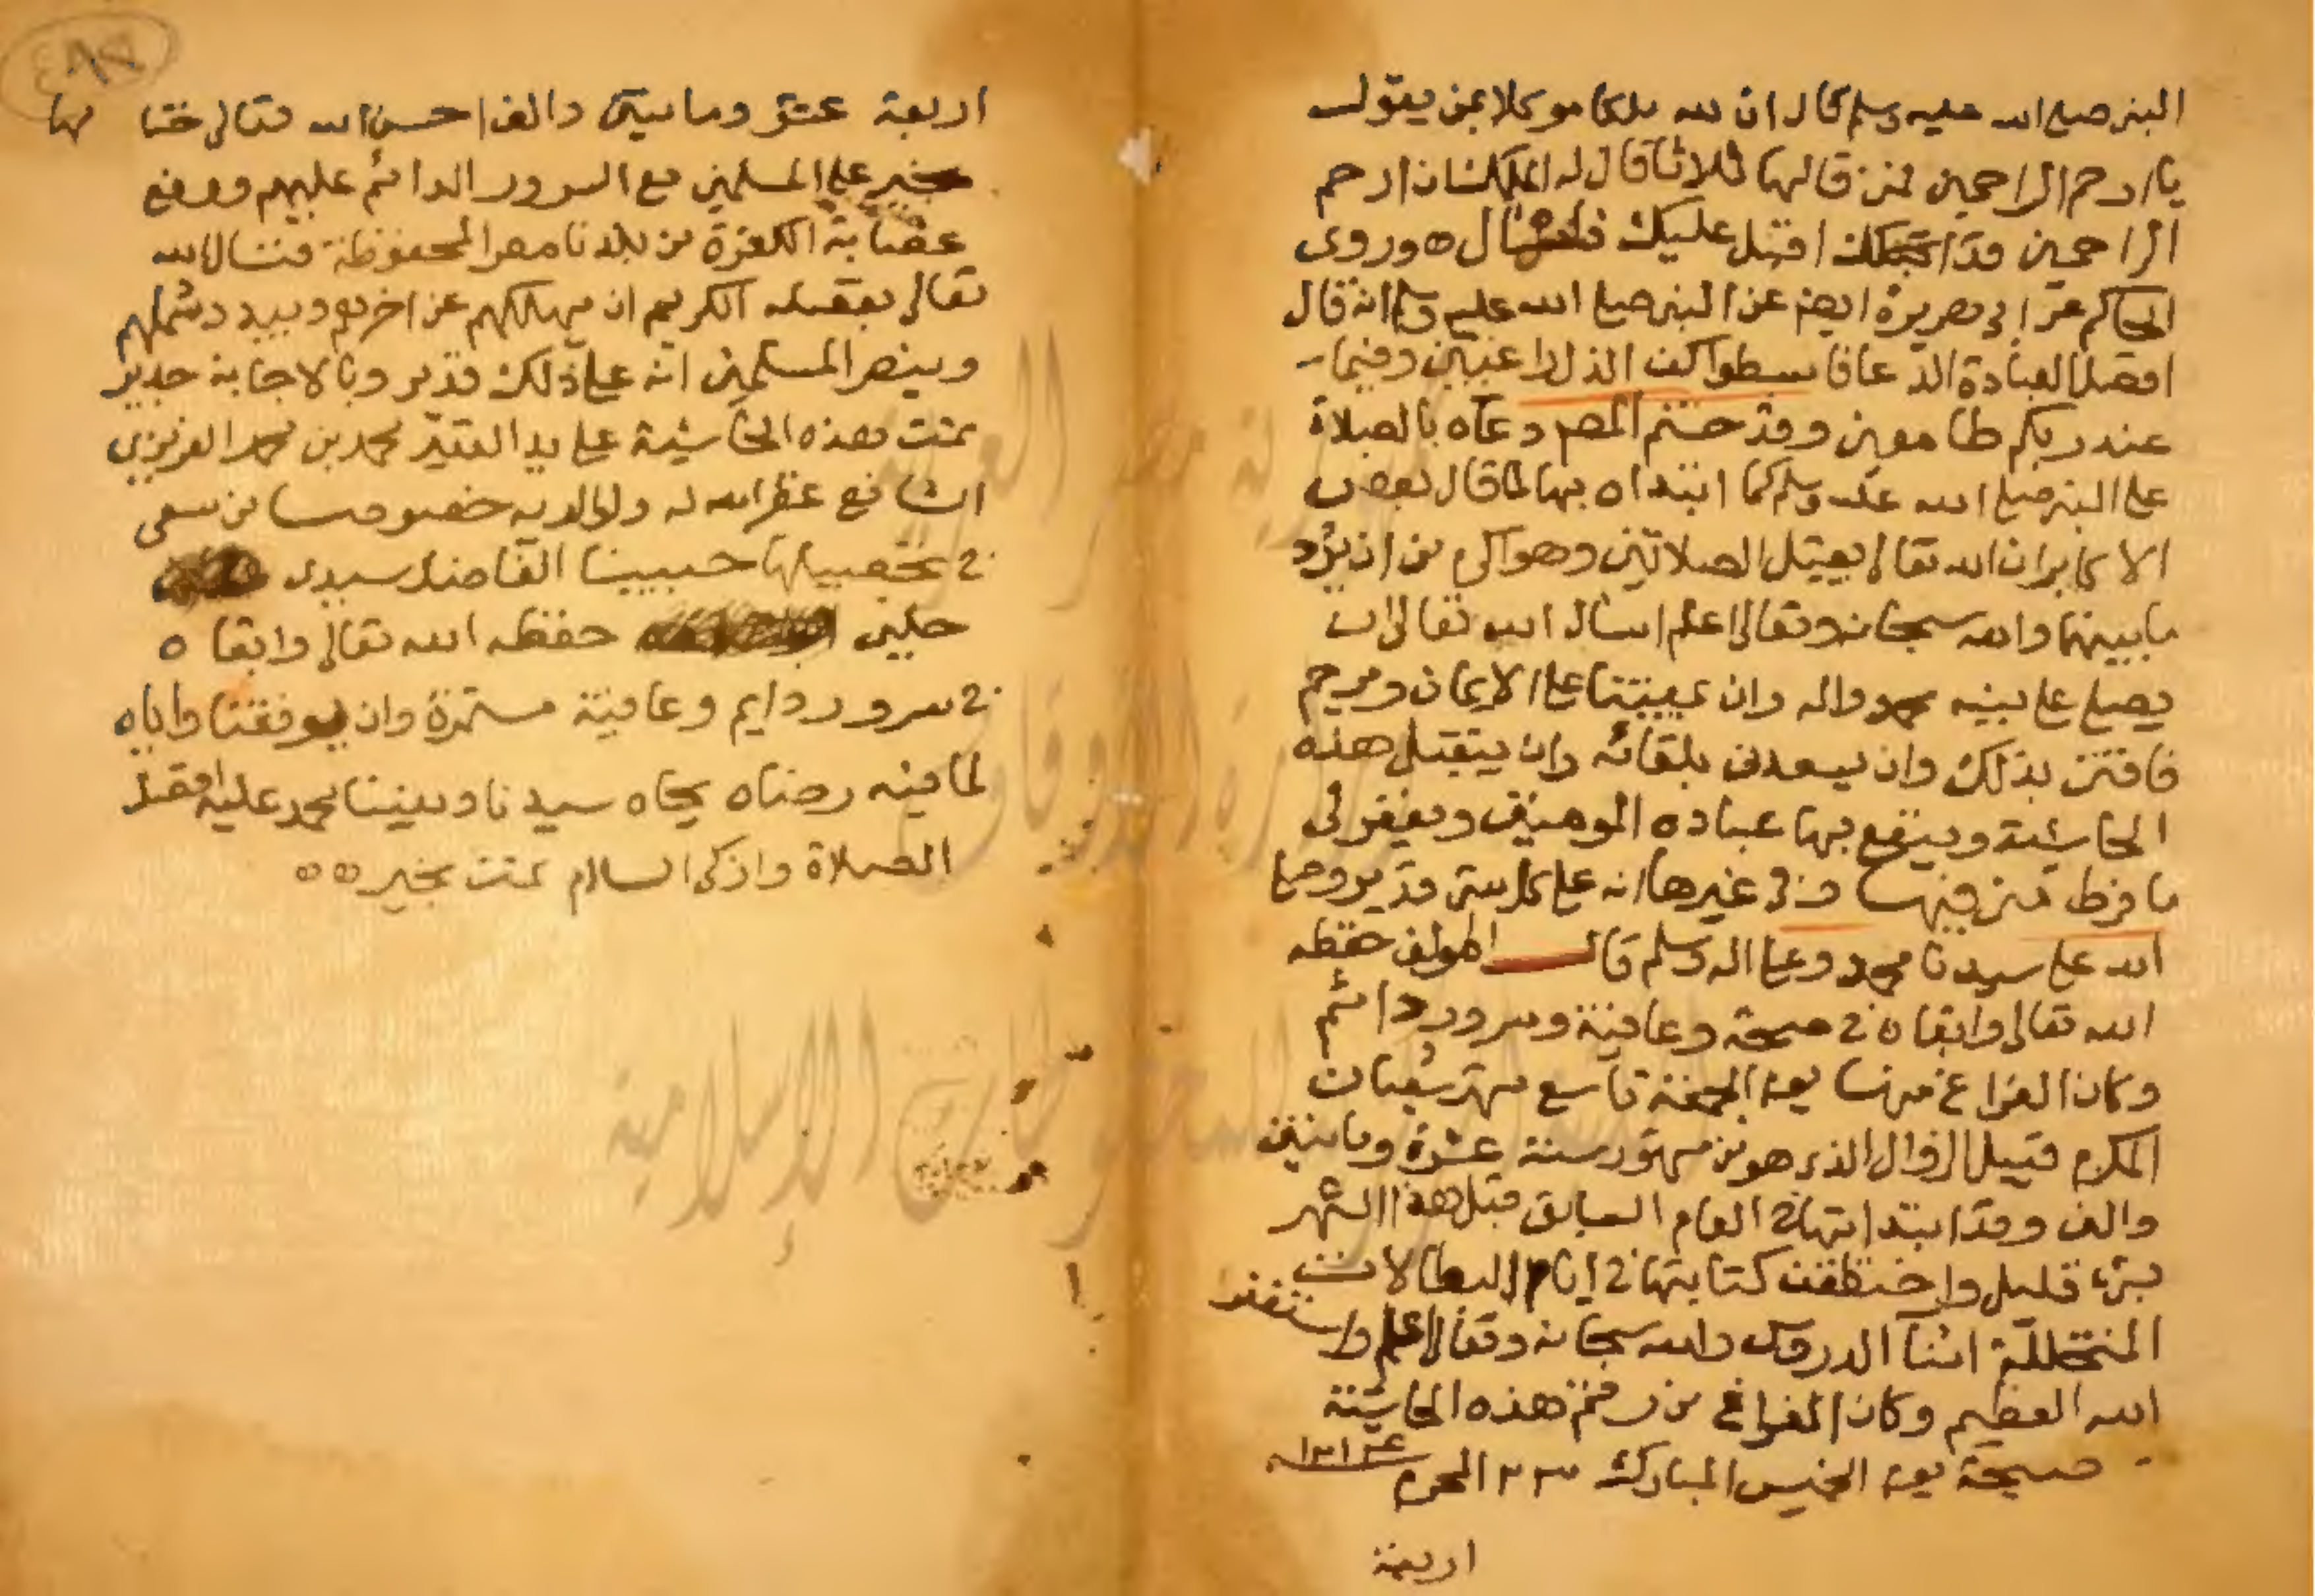 النبي صلى الله عليه وسلم قال ان لله ملكا موكلا بمن يقول
يا ارحم الراحمين فمن قالها ثلاثا قال له الملك ان ارحم
الراحمين قد اقبل عليك فاسال ٥ وروى
الحاكم عن ابي هريرة ايضا عن النبي صلى الله عليه وسلم انه قال
افضل العبادة الدعا فابسطوا اكف الذل راغبين وفيما
عند ربكم طامعين وقد ختم المص دعاه بالصلاة
على النبي صلى الله عليه وسلم كما ابتداه بها لما قال بعض
الاكابر ان الله تعالى يقبل الصلاتين وهو اكرم من ان يرد
ما بينهما والله سبحانه وتعالى اعلم اسال الله تعالى ان
يصلي على نبيه محمد واله وان يميتنا على الايمان ويرحم
فاقتي بذلك وان يسعدني بلقائه وان يتقبل هذه
الحاشية وينفع بها عباده المومنين ويغفر لي
ما فرط مني فيها وفي غيرها انه على كل شي قدير وصلى
الله على سيدنا محمد وعلى اله وسلم قال المولف حفظه
الله تعالى وابقاه في صحة وعافية وسرور دائم
وكان الفراغ منها يوم الجمعة تاسع شهر شعبان
المكرم قبيل الزوال الذي هو من شهور سنة عشرة ومايتين
والف وقد ابتداتها في العام السابق قبل هذا الشهر
بشي قليل واختطفت كتابتها في ايام البطالات
المتخللة اثنا الدروس والله سبحانه وتعالى اعلم واستغفر
الله العظيم وكان الفراغ من رقم هذه الحاشية
صبيحة يوم الخميس المبارك ٢٣ المحرم
اربعة
اربعة عشر ومايتين والف احسن الله تعالى ختامها
بخير على المسلمين مع السرور الدائم عليهم ورفع
عصابة الكفرة من بلدنا مصر المحفوظة فنسال الله
تعالى بفضله الكريم ان يهلكهم عن اخرهم ويبدد شملهم
وينصر المسلمين انه على ذلك قدير وبالاجابة جدير
تمت هذه الحاشية على يد الفقير محمد بن محمد العزيزي
الشافعي غفر الله له ولوالديه خصوصا من سعى
في تحصيلها حبيبنا الفاضل سيدي
حلبي حفظه الله تعالى وابقاه
في سرور دايم وعافية مستمرة وان يوفقنا واياه
لما فيه رضاه بجاه سيدنا ونبينا محمد عليه افضل
الصلاة وازكى السلام تمت بخير ٥٥